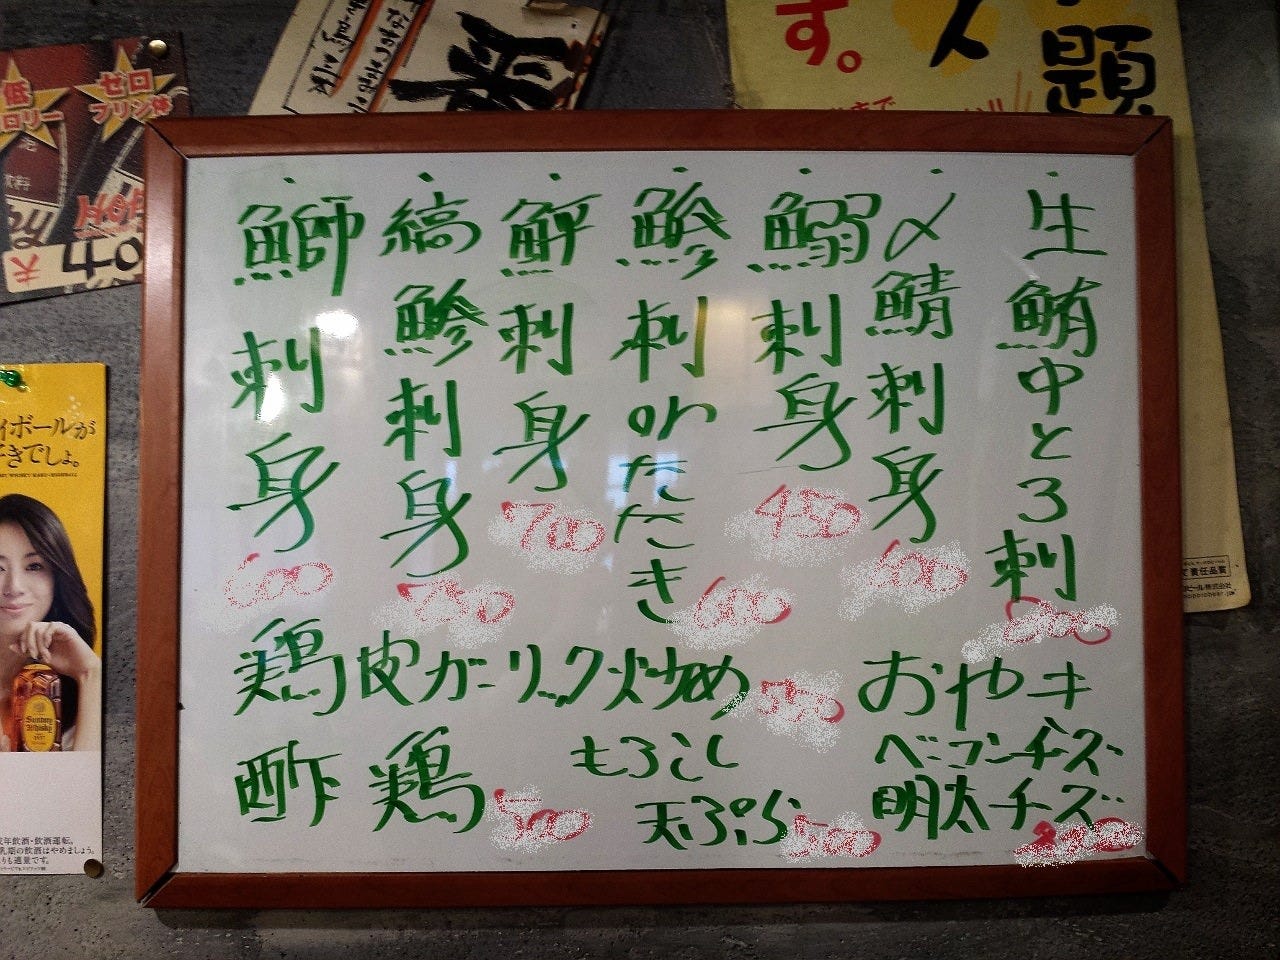 生鮪中とろ刺
〆鯖刺身 600
鰯刺身 450
鯵刺orたたき 600
鮃刺身 700
縞鯵刺身
鰤刺身 600
鶏皮ガーリック炒め
おやキ
ベーコンチーズ
明太チーズ
もろこし
天ぷら 500
酢鶏 500
題
す。
低
ゼロ
プリン体
きでしょ。
Suntory
Whisky